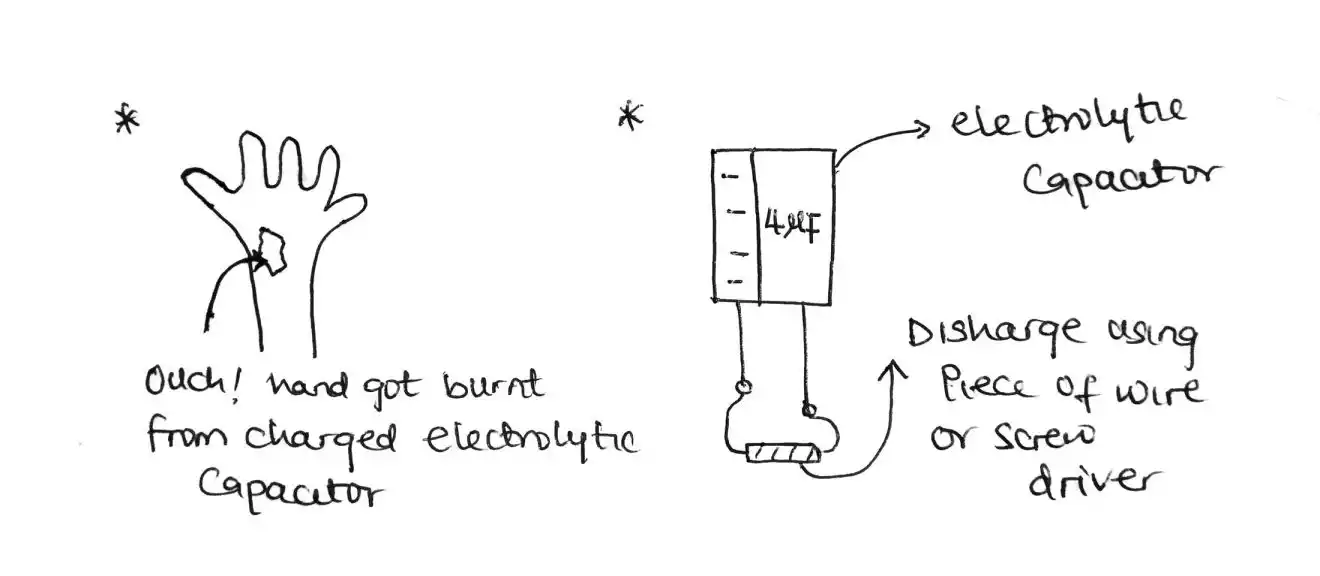 *
Ouch! hand got burnt
from charged electrolytic
Capacitor
*
4µF
electrolytic
Capacitor
Disharge using
Piece of wire
or screw
driver